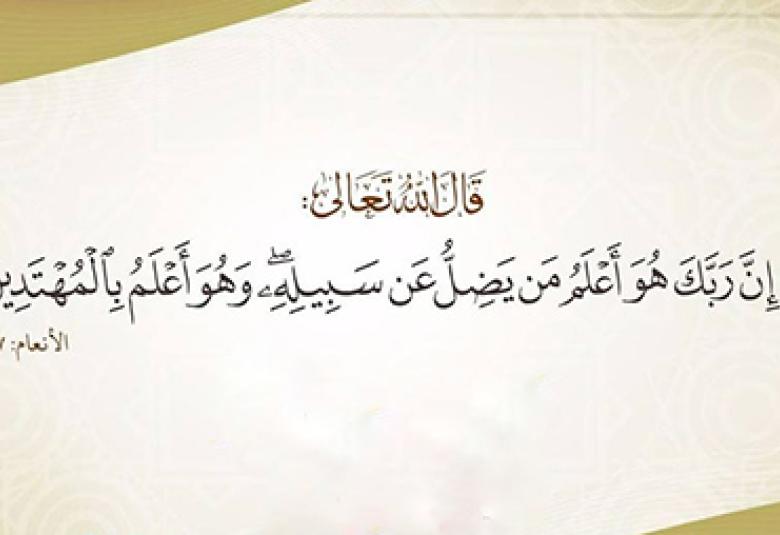 قَالَ اللَّهُ تَعَالَى:
إِنَّ رَبَّكَ هُوَ أَعْلَمُ مَن يَضِلُّ عَن سَبِيلِهِۦۖ وَهُوَ أَعْلَمُ بِٱلْمُهْتَدِين
الأنعام: ٧